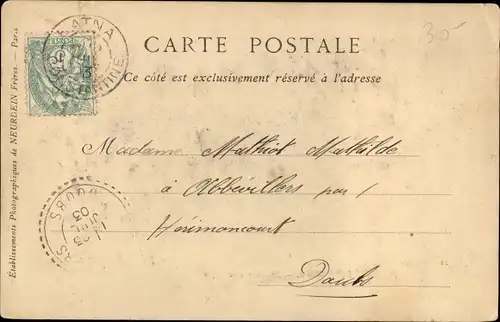 30-
BATNA
CONSTANTINE
CARTE POSTALE
Ce côté est exclusivement réservé à l'adresse
Madame Mathiot Mathilde
à Abbévillers par
Hérimoncourt
Doubs
DOUBS
03
Établissements Photographiques de NEURDEIN Frères. — Paris